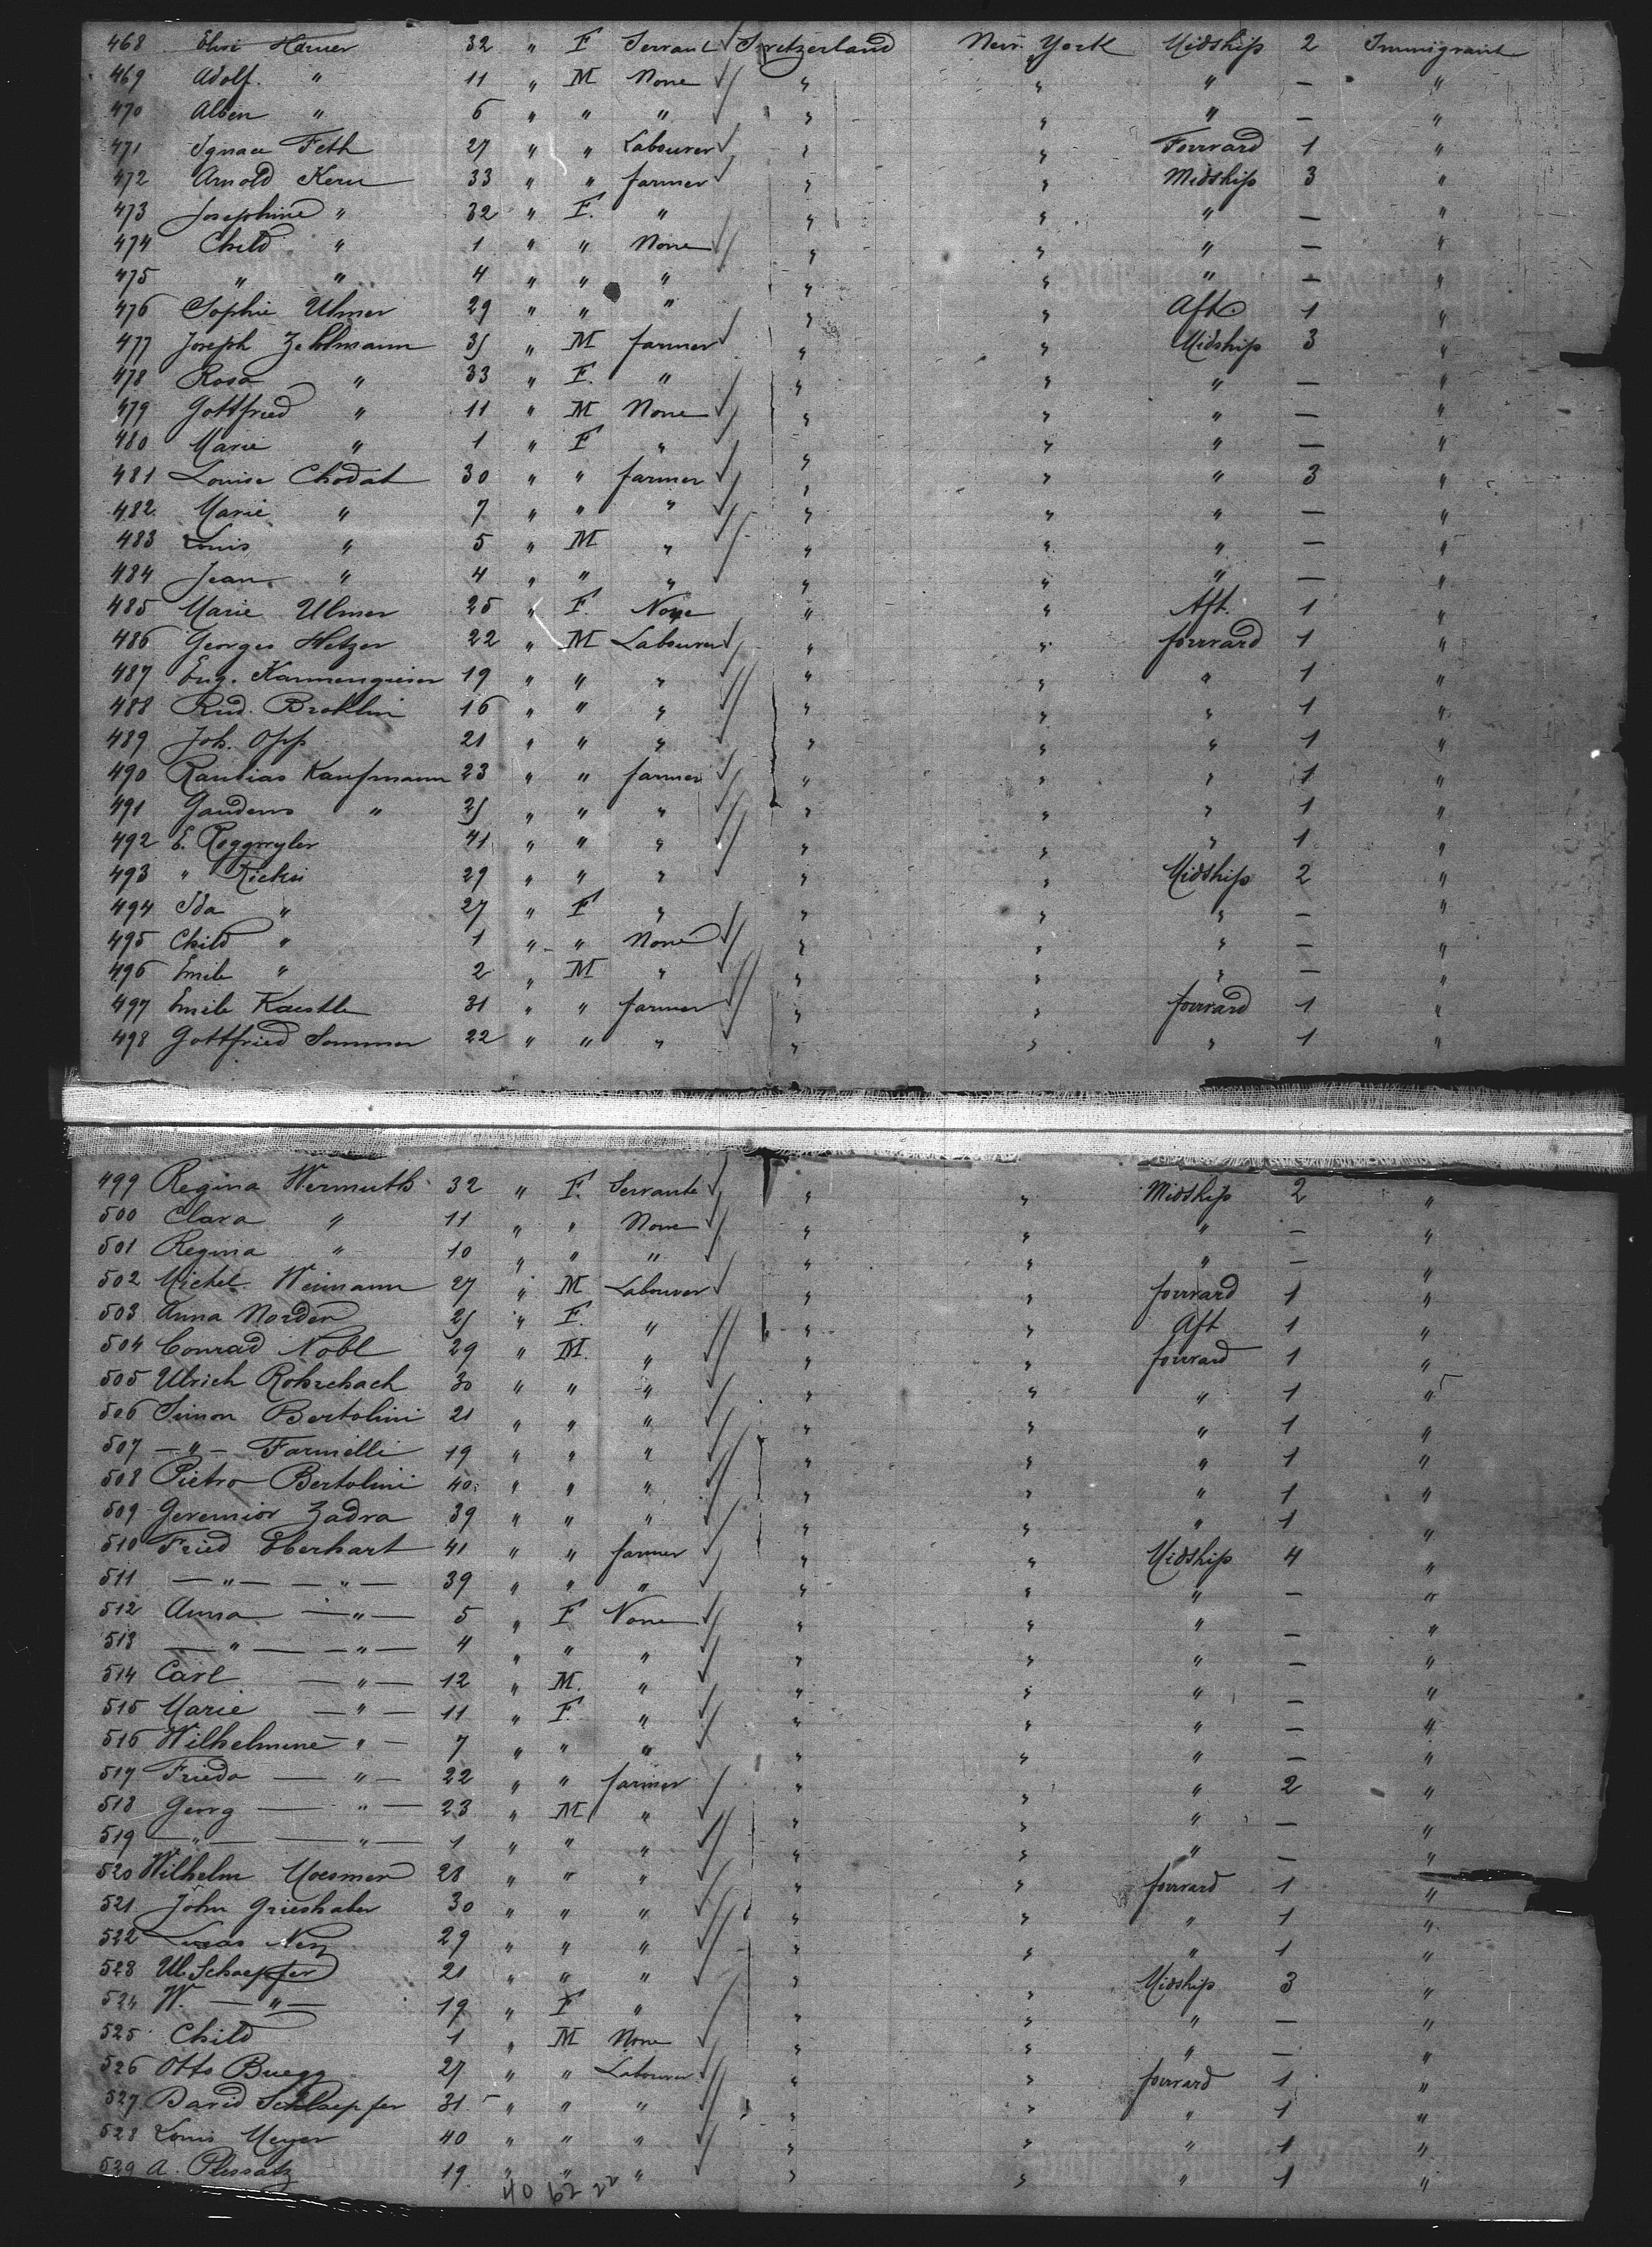 468 Elise Harrer 32 " F Servant Switzerland New York Midship 2 Immigrant
469 Adolf " 11 " M None " " " — "
470 Alben " 6 " " " " " " — "
471 Ignace Feth 27 " " Labourer " " Forward 1 "
472 Arnold Kern 33 " " farmer " " Midship 3 "
473 Josephine " 32 " F. " " " " — "
474 Child " 1 " " None " " " — "
475 " " 4 " " " " " " — "
476 Sophie Ulmer 29 " " " " " Aft. 1 "
477 Joseph 35 " M farmer " " Midship 3 "
478 Rosa " 33 " F. " " " " — "
479 Gottfried " 11 " M None " " " — "
480 Marie " 1 " F " " " " — "
481 Louise Chodat 30 " " farmer " " " 3 "
482 Marie " 7 " " " " " " — "
483 Louis " 5 " M " " " " — "
484 Jean " 4 " " " " " " — "
485 Marie Ulmer 25 " F. None " " Aft. 1 "
486 Georges Hetzer 22 " M Labourer " " forward 1 "
487 Eug. 19 " " " " " " 1 "
488 Rud. Broklin 16 " " " " " " 1 "
489 Joh. Opp 21 " " " " " " 1 "
490 Kaufmann 23 " " farmer " " " 1 "
491 Gaudens " 25 " " " " " " 1 "
492 E. Roggwyler 41 " " " " " " 1 "
493 " 29 " " " " " Midship 2 "
494 Ida " 27 " F " " " " — "
495 Child " 1 " " None " " " — "
496 Emile " 2 " M " " " " — "
497 Emile Kaestle 31 " " farmer " " forward 1 "
498 Gottfried Sommer 22 " " " " " " 1 "
499 Regina Wermuth 32 " F. Servante " " Midship 2 "
500 Clara " 11 " " None " " " — "
501 Regina " 10 " " " " " " — "
502 Michel Weimann 27 " M Labourer " " forward 1 "
503 Anna Norden 25 " F. " " " Aft 1 "
504 Conrad Nobl 29 " M. " " " forward 1 "
505 Ulrich Rohrchach 30 " " " " " " 1 "
506 Simon Bertolini 21 " " " " " " 1 "
507 — " — Farmelli 19 " " " " " " 1 "
508 Pietro Bertolini 40 " " " " " " 1 "
509 Geremior Zadra 39 " " " " " " 1 "
510 Fried Eberhart 41 " " farmer " " Midship 4 "
511 — " — — " — 39 " " " " " " — "
512 Anna — " — 5 " F None " " " — "
513 — " — — " — 4 " " " " " " — "
514 Carl — " — 12 " M. " " " " — "
515 Marie — " — 11 " F. " " " " — "
516 Wilhelmine — " — 7 " " " " " " — "
517 Frieda — " — 22 " " farmer " " " 2 "
518 Georg — " — 23 " M " " " " — "
519 — " — — " — 1 " " " " " " — "
520 Wilhelm Moesmer 28 " " " " " forward 1 "
521 John Grieshaber 30 " " " " " " 1 "
522 Lucas 29 " " " " " " 1 "
523 Ul. Schaepfer 21 " " " " " Midship 3 "
524 W. — " — 19 " F " " " " — "
525 Child 1 " M None " " " — "
526 Otto Buegg 27 " " Labourer " " forward 1 "
527 David Schlaepfer 31 " " " " " " 1 "
528 Louis Meyer 40 " " " " " " 1 "
529 A. 19 " " " " " " 1 "
40 62 22